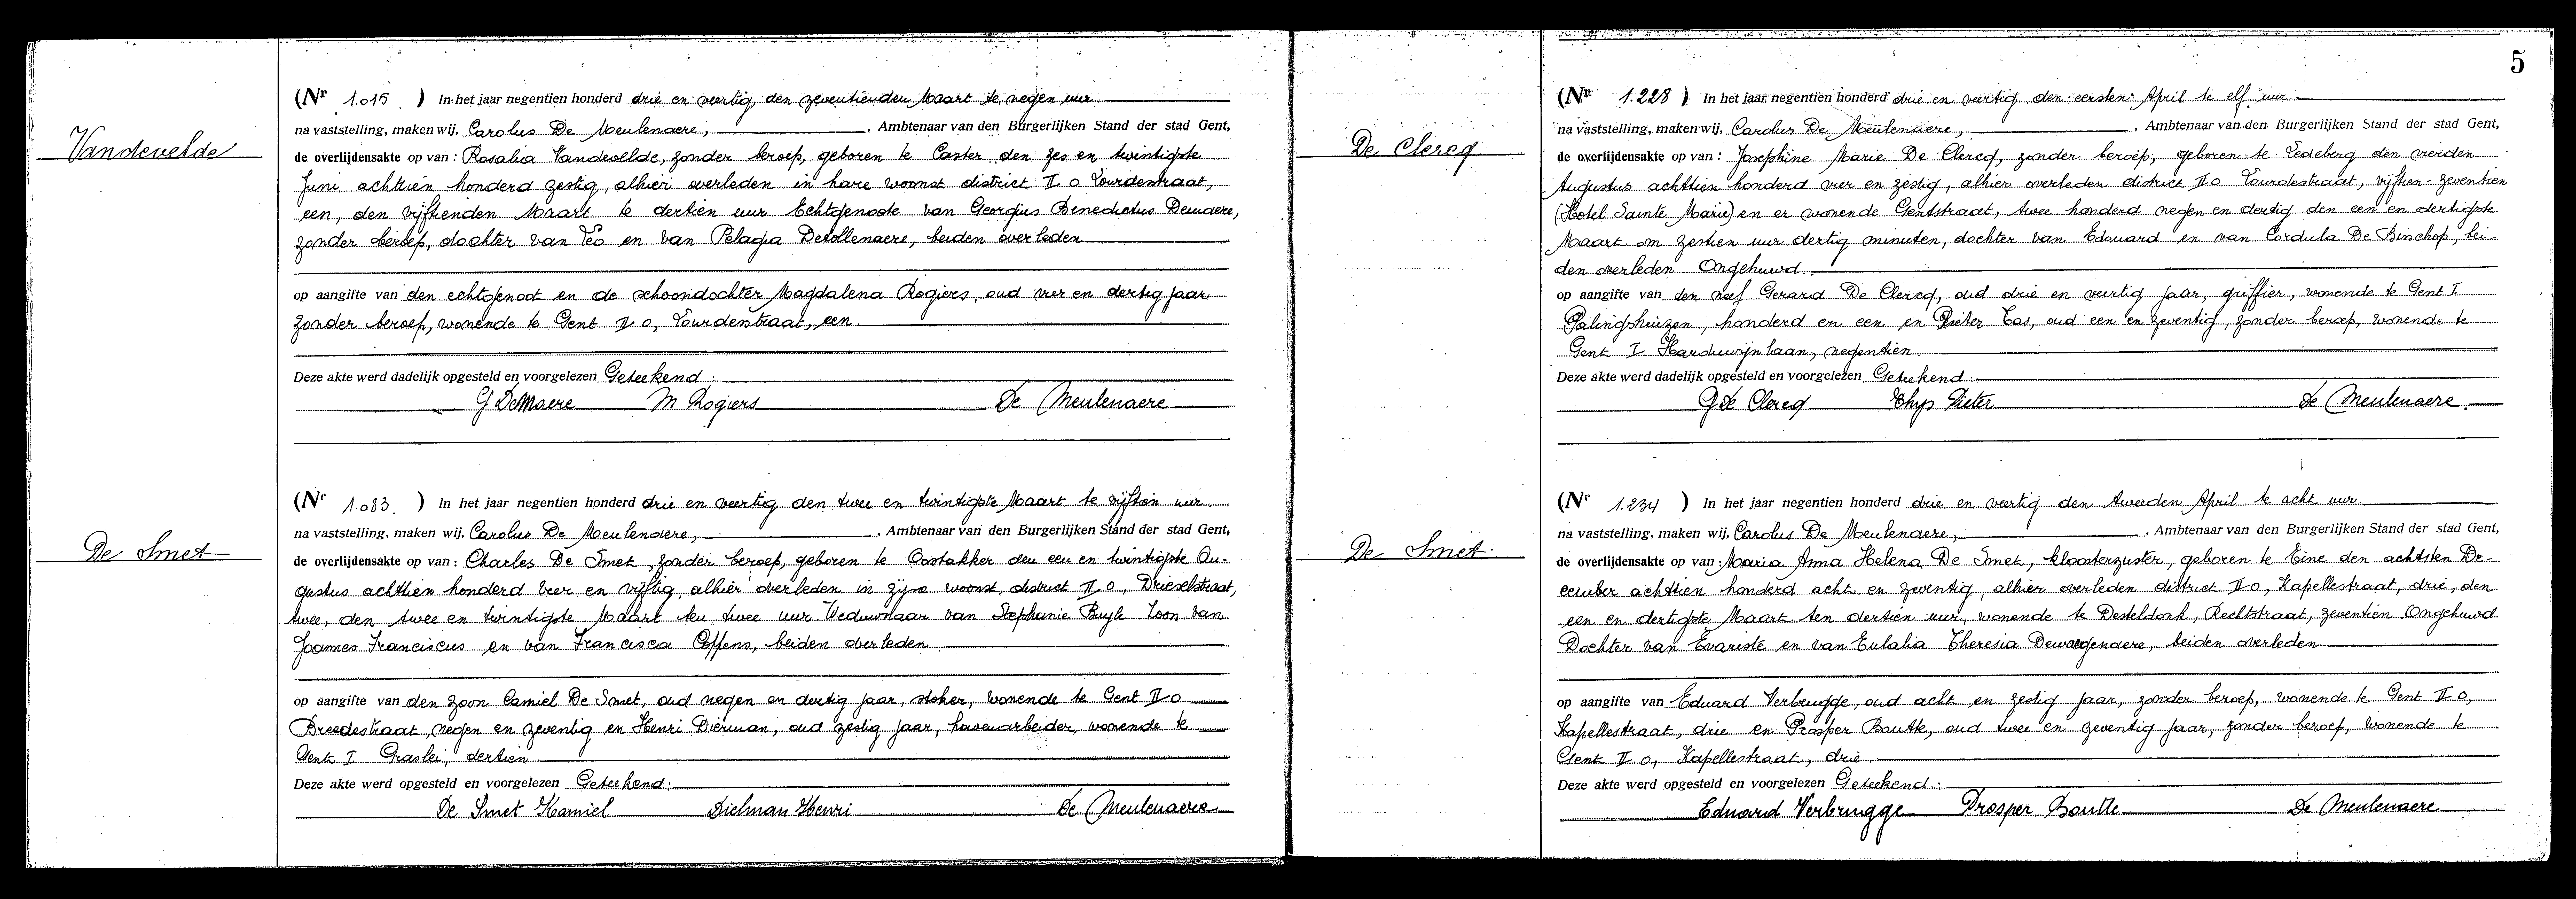 Vandevelde
(Nr 1.015.) In het jaar negentien honderd drie en veertig, den zeventienden Maart te negen uur
na vaststelling, maken wij, Carolus De Meulenaere, , Ambtenaar van den Burgerlijken Stand der stad Gent,
de overlijdensakte op van : Rosalia Vandevelde, zonder beroep, geboren te Caster den zes en twintigste
Juni achttien honderd zestig, alhier overleden in hare woonst district II o Lourdestraat,
een, den vijftienden Maart te dertien uur Echtgenoote van Georgius Benedictus Demaere,
zonder beroep, dochter van Leo en van Pelagia Detollenaere, beiden overleden
op aangifte van den echtgenoot en de schoondochter Magdalena Rogiers, oud vier en dertig jaar
zonder beroep, wonende te Gent II o, Lourdestraat, een
Deze akte werd dadelijk opgesteld en voorgelezen Geteekend :
G DeMaere M Rogiers De Meulenaere
De Smet
(Nr 1.083.) In het jaar negentien honderd drie en veertig den twee en twintigste Maart te vijftien uur
na vaststelling, maken wij, Carolus De Meulenaere, , Ambtenaar van den Burgerlijken Stand der stad Gent,
de overlijdensakte op van : Charles De Smet, zonder beroep, geboren te Oostakker den een en twintigste Au-
gustus achttien honderd vier en vijftig, alhier overleden in zijne woonst, district II o, Drieselstraat,
twee, den twee en twintigste Maart ten twee uur Weduwnaar van Stephanie Buyle Zoon van
Joannes Franciscus en van Francisca Coffens, beiden overleden
op aangifte van den zoon Camiel De Smet, oud negen en dertig jaar, stoker, wonende te Gent II o
Breedestraat, negen en zeventig en Henri Dierman, oud zestig jaar, havenarbeider, wonende te
Gent I Graslei, dertien
Deze akte werd opgesteld en voorgelezen Geteekend :
De Smet Kamiel Dielman Henri De Meulenaere
5
De Clercq
(Nr 1.228) In het jaar negentien honderd drie en veertig den eersten April te elf uur
na vaststelling, maken wij, Carolus De Meulenaere, , Ambtenaar van den Burgerlijken Stand der stad Gent,
de overlijdensakte op van : Josephine Marie De Clercq, zonder beroep, geboren te Ledeberg den vierden
Augustus achttien honderd vier en zestig, alhier overleden district II o Lourdestraat, vijftien-zeventien
(Hotel Sainte Marie) en er wonende Gentstraat, twee honderd negen en dertig den een en dertigste
Maart om zestien uur dertig minuten, dochter van Edouard en van Cordula De Binschop, bei-
den overleden Ongehuwd.
op aangifte van den neef Gerard De Clercq, oud drie en veertig jaar, griffier, wonende te Gent I
Palingshuizen, honderd en een en Pieter Cas, oud een en zeventig, zonder beroep, wonende te
Gent I Harduwijnlaan, negentien
Deze akte werd dadelijk opgesteld en voorgelezen Geteekend :
G De Clercq Thys Pieter De Meulenaere.
De Smet
(Nr 1.234) In het jaar negentien honderd drie en veertig den tweeden April te acht uur
na vaststelling, maken wij, Carolus De Meulenaere, , Ambtenaar van den Burgerlijken Stand der stad Gent,
de overlijdensakte op van : Maria Anna Helena De Smet, kloosterzuster, geboren te Eine den achtsten De-
cember achttien honderd acht en zeventig, alhier overleden district II o, Kapellestraat, drie, den
een en dertigste Maart ten dertien uur, wonende te Desteldonk, Rechtstraat, zeventien Ongehuwd
Dochter van Evariste en van Eulalia Theresia Dewaegenaere, beiden overleden
op aangifte van Eduard Verbrugge, oud acht en zestig jaar, zonder beroep, wonende te Gent II o,
Kapellestraat, drie en Prosper Boutte, oud twee en zeventig jaar, zonder beroep, wonende te
Gent II o, Kapellestraat, drie
Deze akte werd opgesteld en voorgelezen Geteekend :
Eduard Verbrugge Prosper Boutte De Meulenaere